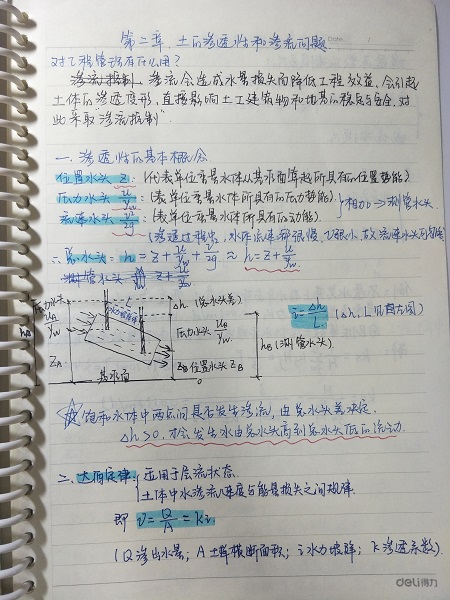 第二章 土的渗透性和渗流问题
对工程管场有什么用?
渗流控制 渗流会造成水量损失而降低工程效益,会引起
土体的渗透变形,直接影响土工建筑物和地基的稳定与安全,对
此采取"渗流控制"
一、渗透性的基本概念
位置水头 z:(代表单位重量水体从基准面算起所具有的位置势能)
压力水头 u/γw:(表单位重量水体所具有的压力势能)
流速水头 v²/2g:(表单位重量水体所具有的动能)
相加→测管水头
(渗透过程中,水体流速都很慢,v很小,故流速水头可忽略)
∴总水头:h = z + u/γw + v²/2g ≈ h = z + u/γw
测管水头 = z + u/γw
压力水头 uA/γw
hA
ZA
L
Δh (总水头差)
压力水头 uB/γw
hB (测管水头)
ZB 位置水头 ZB
基准面
0
i = Δh/L (Δh、L见左图)
饱和水体中两点间是否发生渗流,由总水头差决定.
Δh>0,才会发生水由总水头高到总水头低的流动.
二、达西定律:适用于层流状态
土体中水渗流速度与能量损失之间规律.
即 v = Q/A = ki
(Q渗出水量;A土样横断面积;i水力坡降;k渗透系数)
deli得力